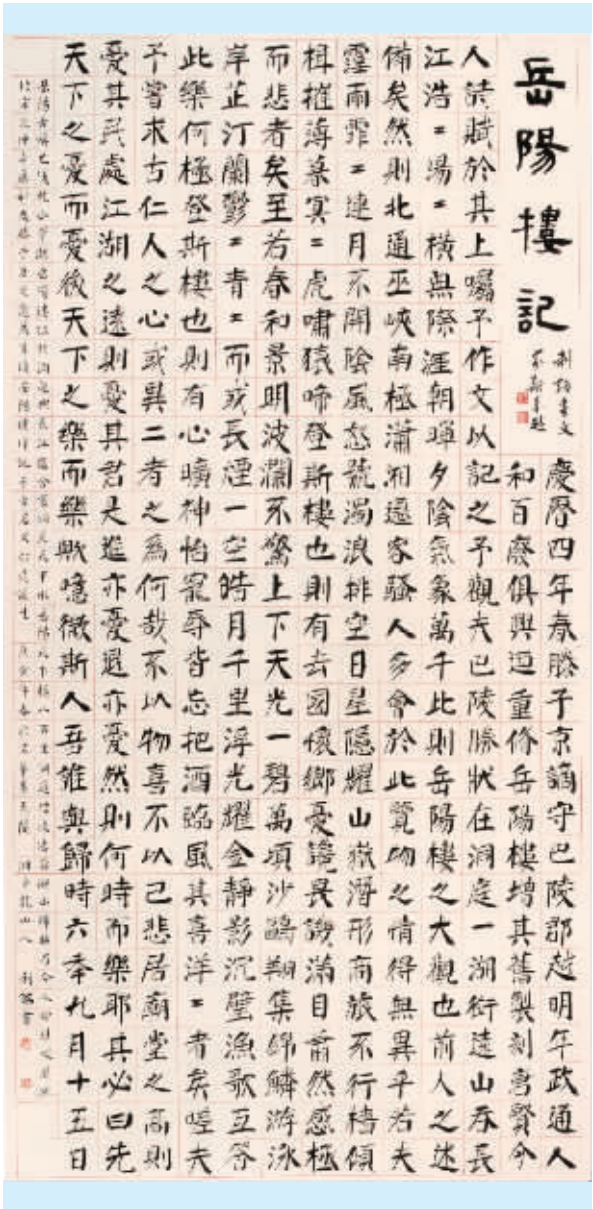 岳陽樓記
慶曆四年春滕子京謫守巴陵郡越明年政通人
和百廢俱興迺重修岳陽樓增其舊製刻唐賢今
人詩賦於其上囑予作文以記之予觀夫巴陵勝狀在洞庭一湖銜遠山吞長
江浩=湯=橫無際涯朝暉夕陰氣象萬千此則岳陽樓之大觀也前人之述
備矣然則北通巫峽南極瀟湘遷客騷人多會於此覽物之情得無異乎若夫
霪雨霏=連月不開陰風怒號濁浪排空日星隱耀山嶽潛形商旅不行檣傾
楫摧薄暮冥=虎嘯猿啼登斯樓也則有去國懷鄉憂讒畏譏滿目蕭然感極
而悲者矣至若春和景明波瀾不驚上下天光一碧萬頃沙鷗翔集錦鱗游泳
岸芷汀蘭鬱=青=而或長煙一空皓月千里浮光耀金靜影沉璧漁歌互答
此樂何極登斯樓也則有心曠神怡寵辱皆忘把酒臨風其喜洋=者矣嗟夫
予嘗求古仁人之心或異二者之為何哉不以物喜不以己悲居廟堂之高則
憂其民處江湖之遠則憂其君是進亦憂退亦憂然則何時而樂耶其必曰先
天下之憂而憂後天下之樂而樂歟噫微斯人吾誰與歸時六年九月十五日